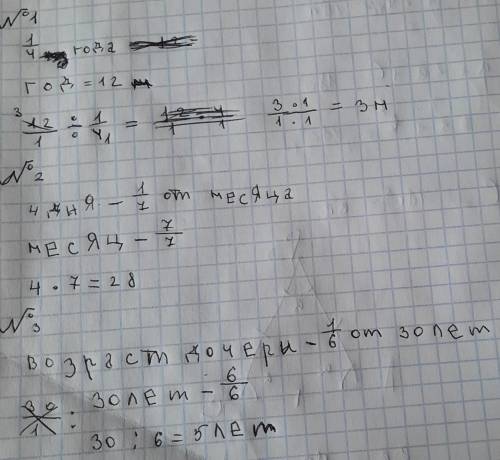 №1
1/4 года
год = 12 м
12/1 ÷ 1/4 = 3·1/1·1 = 3м
№2
4 дня – 1/7 от месяца
месяц – 7/7
4 · 7 = 28
№3
возраст дочери – 1/6 от 30 лет
30 лет – 6/6
30 : 6 = 5 лет